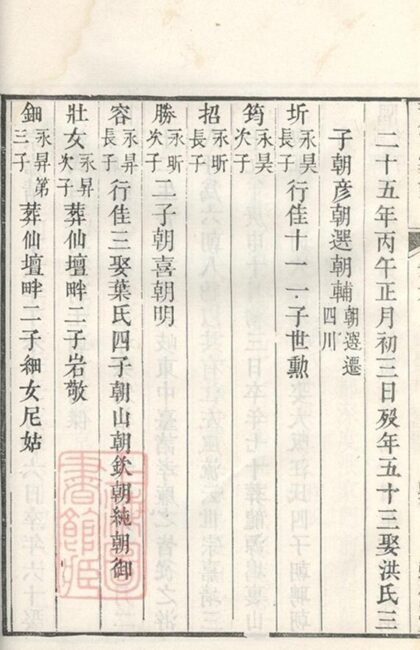 二十五年丙午正月初三日歿年五十三娶洪氏三
子朝彦朝選朝輔朝選遷四川
圻永昊長子行佳十一一子世勲
筠永昊次子
招永昕長子
勝永昕次子二子朝喜朝明
容永昇長子行佳三娶葉氏四子朝山朝欽朝純朝御
壯女永昇次子葬仙壇畔二子岩敬
鈿永昇第三子葬仙壇畔二子細女尼姑